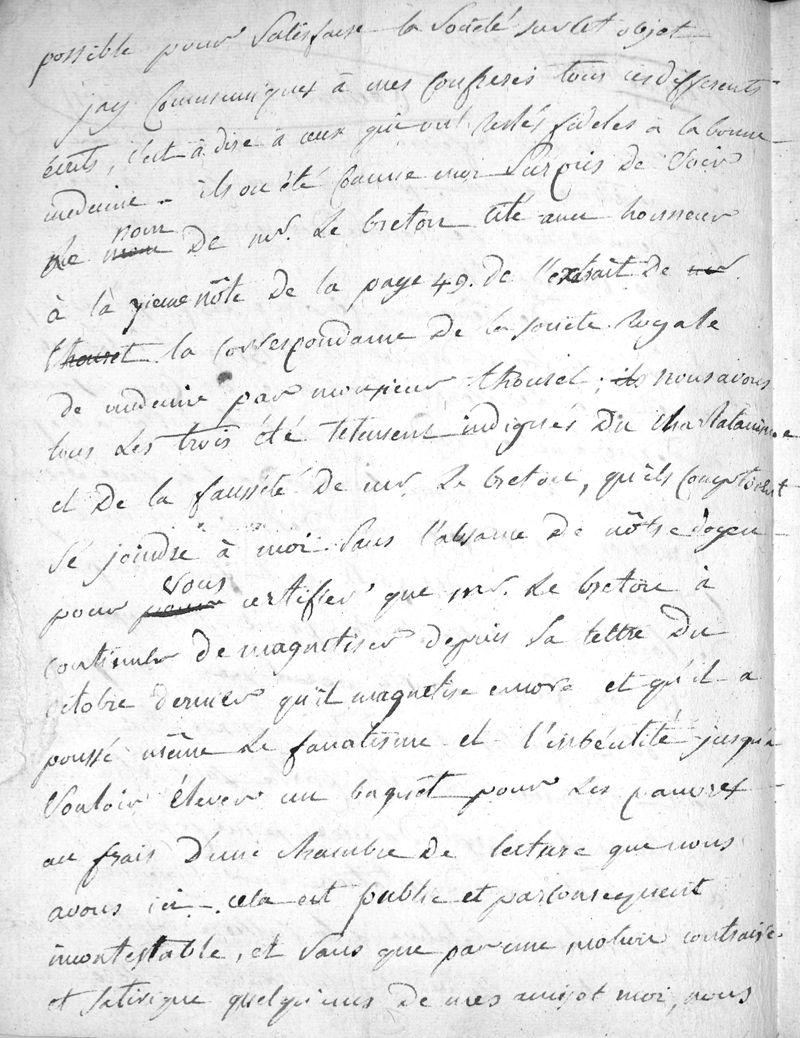 possible pour Satisfaire la Société sur cet objet
jay Communiquez à mes confreres tous ces differents
écrits, c'est à dire à ceux qui ont restés fideles à la bonne
medecine - ils ont été comme moi Surpris de Voir
Le nom De mr. Le breton cité avec honneur
à la note De la page 49. De l'extrait De mr
thouret la correspondance De la societé Royale
De medecine par monsieur thouret, ils nous avons
tous Les trois été tellement indignés Du charlatanisme
et De la fausseté De mr. Le breton, qu'ils comptoient
Se joindre à moi Sans l'absence De nôtre Doyen
pour pour vous certifier que mr. Le breton à
continuer De magnetiser depuis Sa lettre Du
octobre Dernier qu'il magnetise encore et qu'il a
poussé même Le fanatisme et l'imbécilité jusqu'à
Vouloir Elever un baquet pour Les pauvres
au frais D'une chambre De lecture que nous
avons ici - cela est public et par consequent
incontestable, et Sans que par une motion contraire
et Satirique quelqu'uns De mes amis et moi, nous